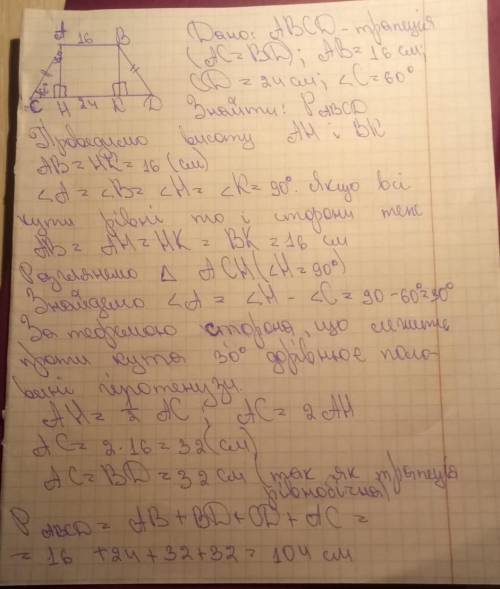 A 16 B
C H 24 K D
Дано: ABCD - трапеція
(AC = BD); AB = 16 см;
CD = 24 см; ∠C = 60°
Знайти: P ABCD
Проведемо висоту AH і BK
AB = HK = 16 (см)
∠A = ∠B = ∠H = ∠K = 90°. Якщо всі
кути рівні то і сторони теж
AB = AH = HK = BK = 16 см
Розглянемо △ ACH (∠H = 90°)
Знайдемо ∠A = ∠H - ∠C = 90 - 60° = 30°
За теоремою сторона, що лежить
проти кута 30° дорівнює поло-
вині гіпотенузи.
AH = ½ AC; AC = 2 AH
AC = 2 · 16 = 32 (см)
AC = BD = 32 см (так як трапеція
рівнобічна)
P ABCD = AB + BD + CD + AC =
= 16 + 24 + 32 + 32 = 104 см